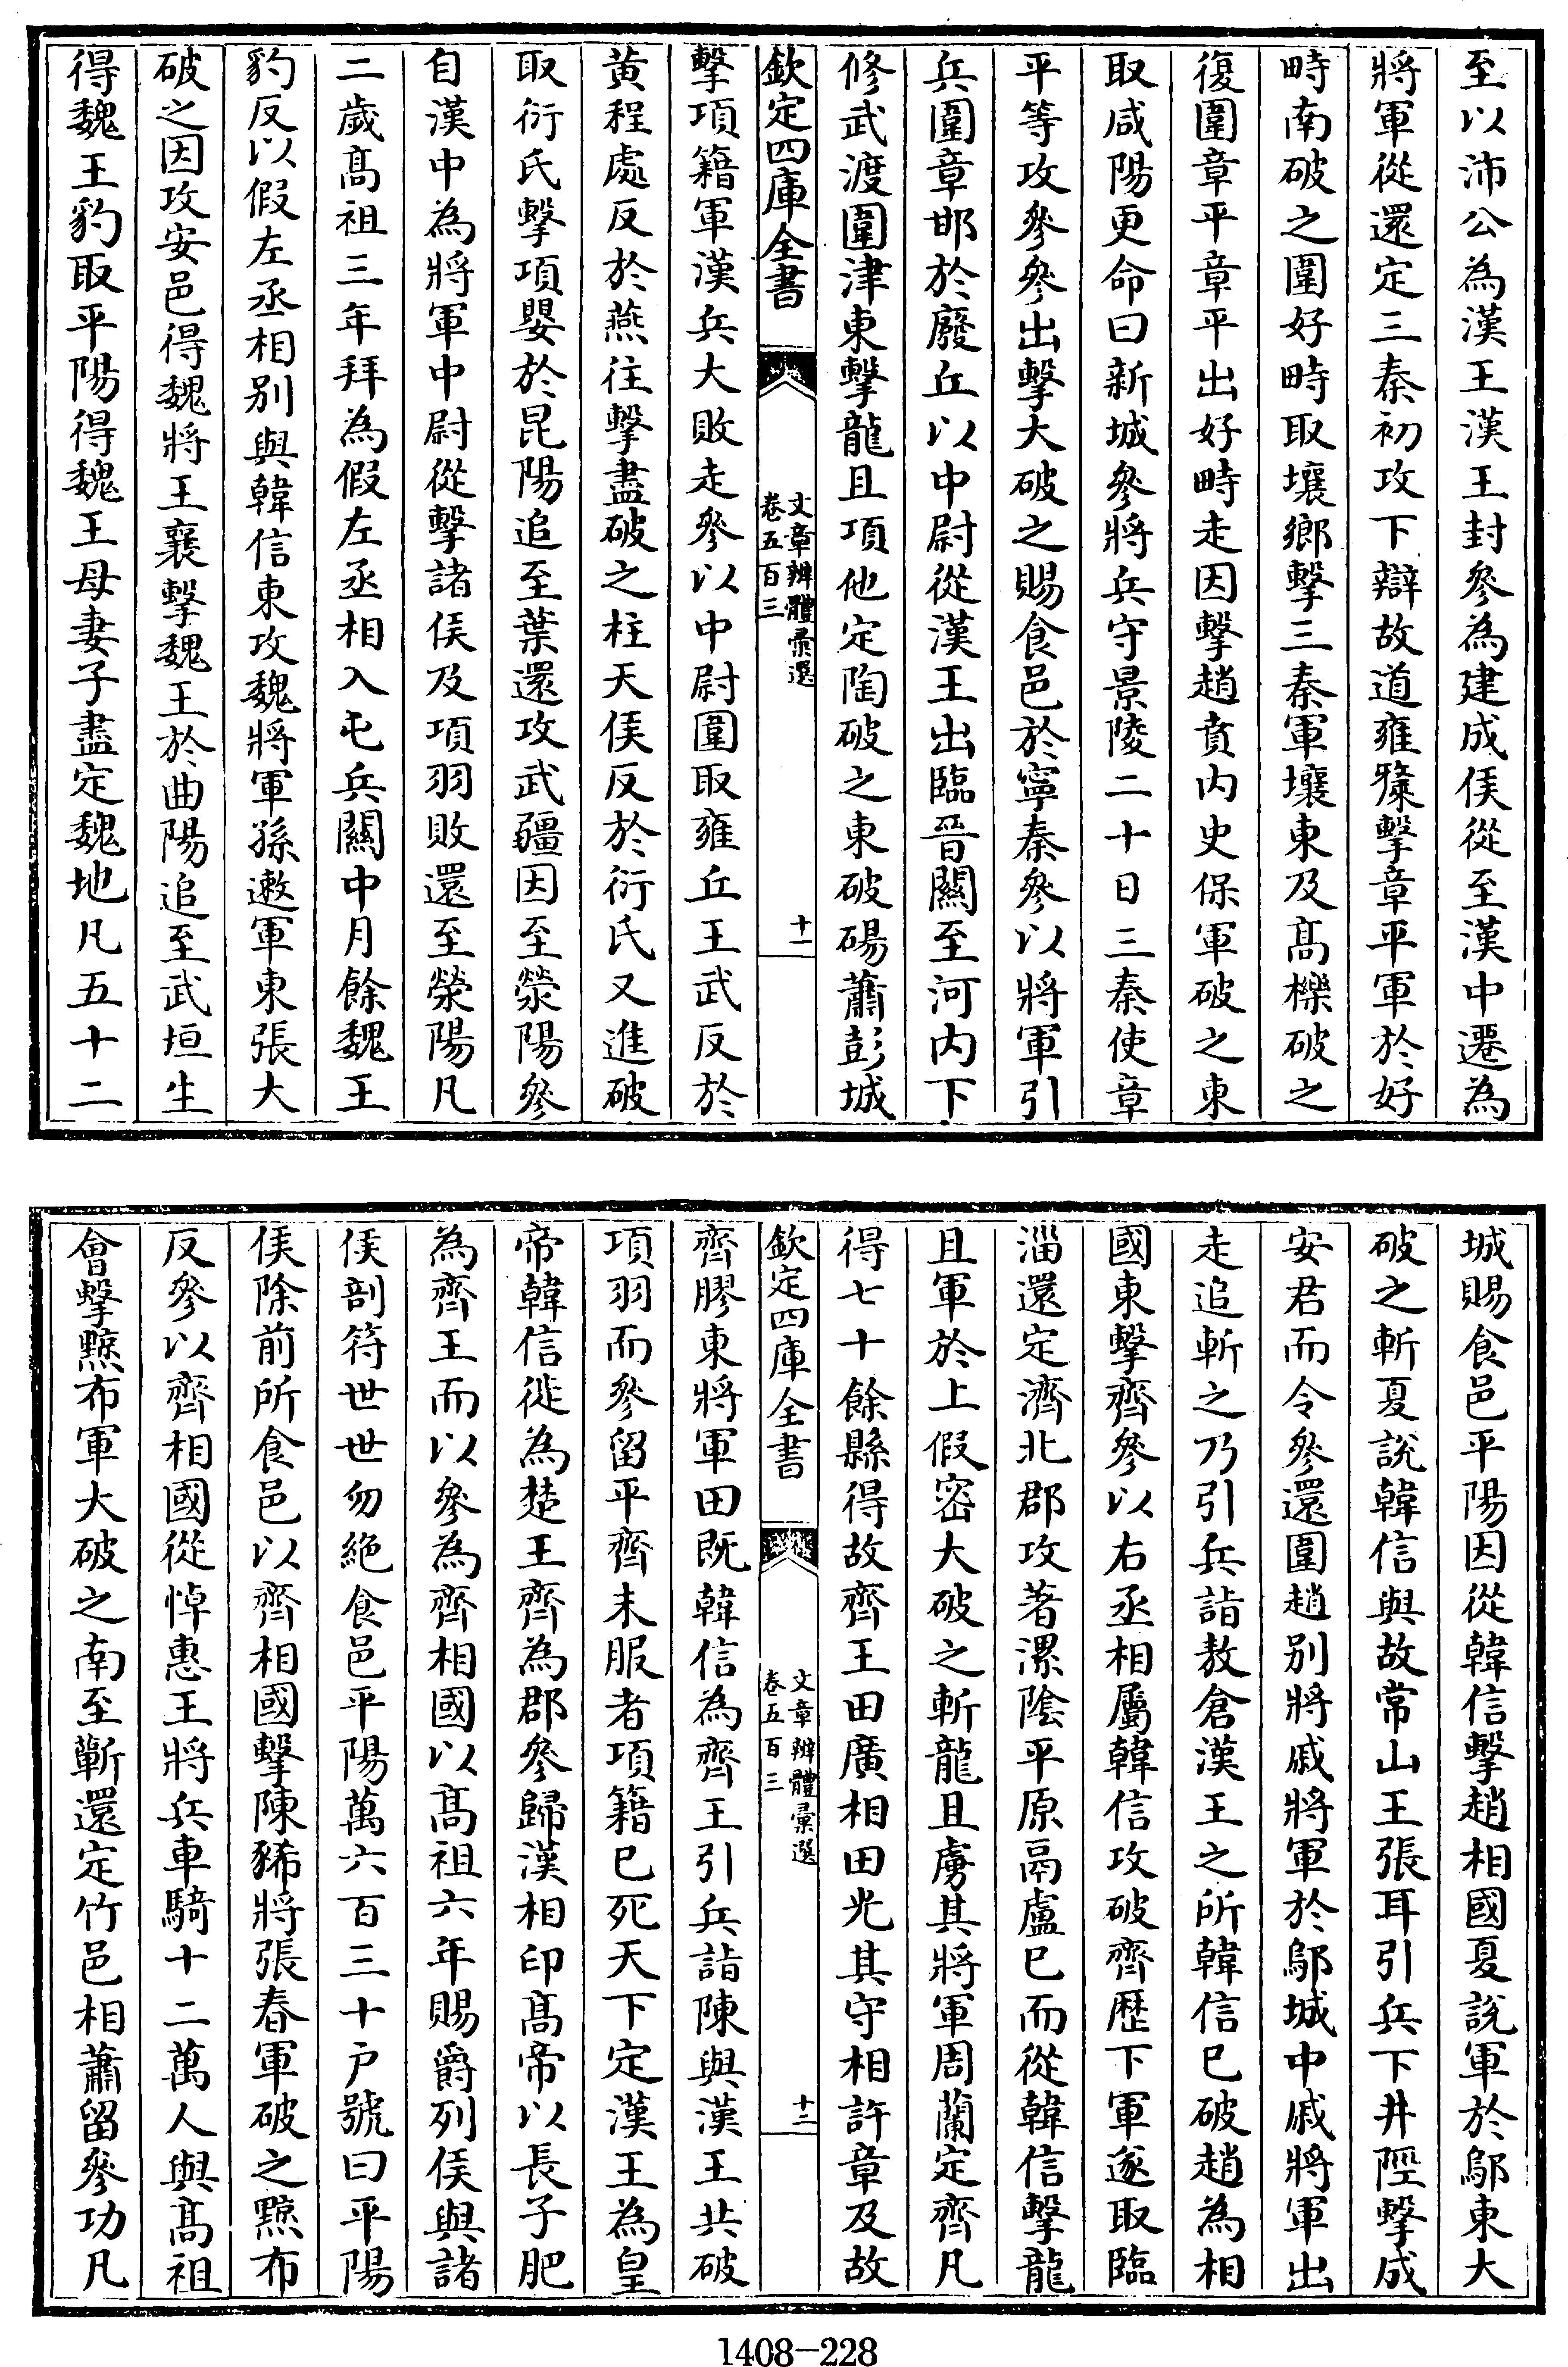 至以沛公為漢王漢王封參為建成侯從至漢中遷為
將軍從還定三秦初攻下辯故道雍斄擊章平軍於好
畤南破之圍好畤取壤鄉擊三秦軍壤東及髙櫟破之
復圍章平章平出好畤走因擊趙賁内史保軍破之東
取咸陽更命曰新城參將兵守景陵二十日三秦使章
平等攻參參出擊大破之賜食邑於寧秦參以將軍引
兵圍章邯於廢丘以中尉從漢王出臨晉關至河内下
修武渡圍津東擊龍且項他定陶破之東破碭蕭彭城
欽定四庫全書
文章辨體彚選
卷五百三
十一
擊項籍軍漢兵大敗走參以中尉圍取雍丘王武反於
黄程處反於燕往擊盡破之柱天侯反於衍氏又進破
取衍氏擊項嬰於昆陽追至葉還攻武疆因至滎陽參
自漢中為將軍中尉從擊諸侯及項羽敗還至滎陽凡
二歲髙祖三年拜為假左丞相入屯兵關中月餘魏王
豹反以假左丞相别與韓信東攻魏將軍孫遬軍東張大
破之因攻安邑得魏將王襄擊魏王於曲陽追至武垣生
得魏王豹取平陽得魏王母妻子盡定魏地凡五十二
城賜食邑平陽因從韓信擊趙相國夏說軍於鄔東大
破之斬夏說韓信與故常山王張耳引兵下井陘擊成
安君而令參還圍趙别將戚將軍於鄔城中戚將軍出
走追斬之乃引兵詣敖倉漢王之所韓信已破趙為相
國東擊齊參以右丞相屬韓信攻破齊歴下軍遂取臨
淄還定濟北郡攻著漯隂平原鬲盧已而從韓信擊龍
且軍於上假密大破之斬龍且虜其將軍周蘭定齊凡
得七十餘縣得故齊王田廣相田光其守相許章及故
欽定四庫全書
文章辨體彚選
卷五百三
十二
齊膠東將軍田既韓信為齊王引兵詣陳與漢王共破
項羽而參留平齊未服者項籍已死天下定漢王為皇
帝韓信徙為楚王齊為郡參歸漢相印髙帝以長子肥
為齊王而以參為齊相國以髙祖六年賜爵列侯與諸
侯剖符世世勿絶食邑平陽萬六百三十户號曰平陽
侯除前所食邑以齊相國擊陳豨將張春軍破之黥布
反參以齊相國從悼惠王將兵車騎十二萬人與髙祖
會擊黥布軍大破之南至蘄還定竹邑相蕭留參功凡
1408-228